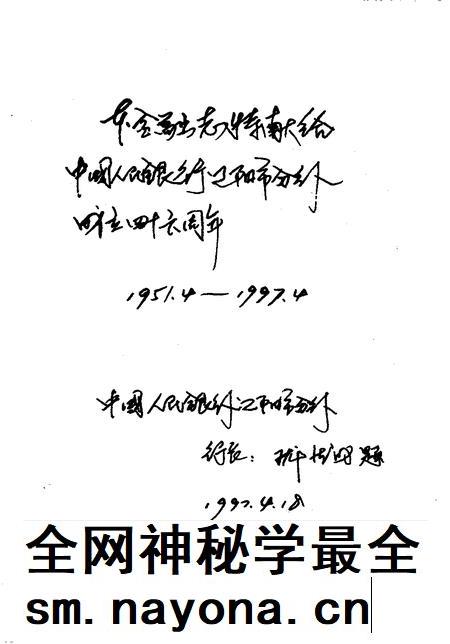 特献给
中国人民银行辽阳市分行
成立四十六周年
1951.4—1997.4
中國人民银行辽阳市分行
行长: 题
1997.4.18
全网神秘学最全
sm.nayona.cn